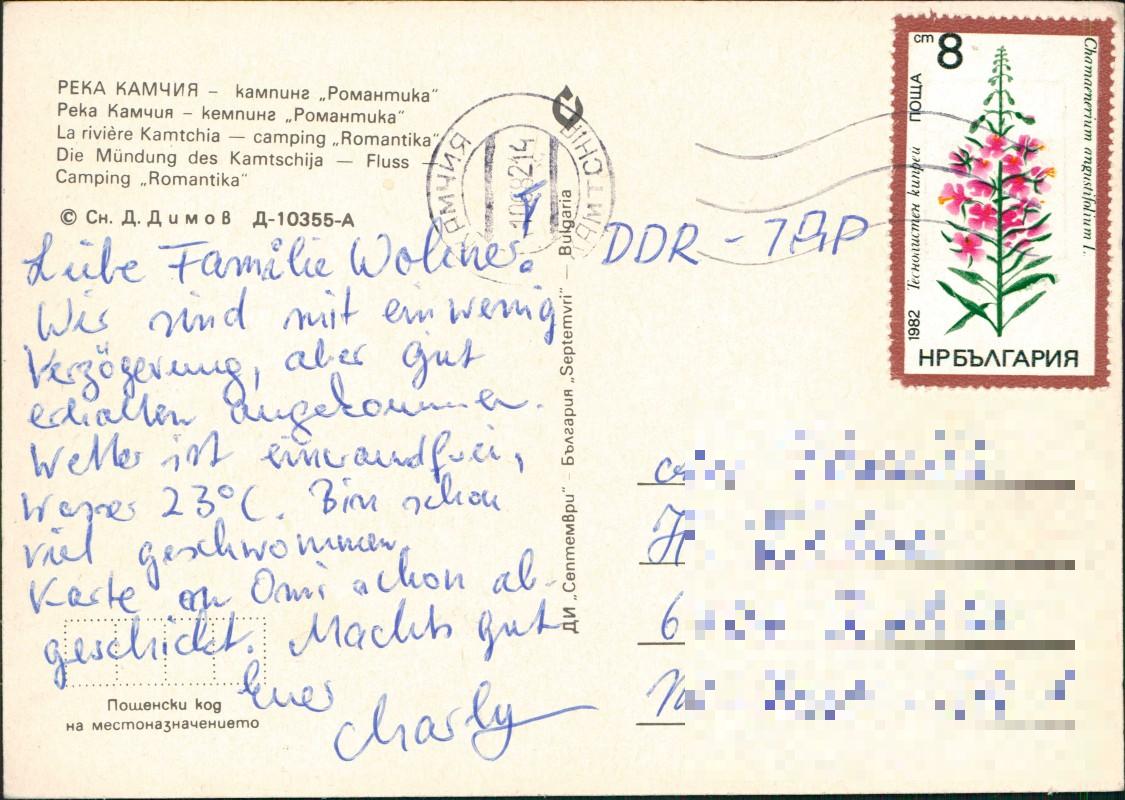 РЕКА КАМЧИЯ – кампинг „Романтика“
Река Камчия – кемпинг „Романтика“
La rivière Kamtchia — camping „Romantika“
Die Mündung des Kamtschija — Fluss —
Camping „Romantika“
© Сн. Д. Димов Д-10355-А
Liebe Familie
Wir sind mit ein wenig
Verzögerung, aber gut
erhalten angekommen.
Wetter ist einwandfrei,
Wasser 23°C. Bin schon
viel geschwommen
Karte an Omi schon ab-
geschickt. Machts gut
Euer
Charly
Пощенски код
на местоназначението
ДИ „Септември“ – България „Septemvri“ — Bulgaria
КАМЧИЯ
DDR - ГДР
ст 8
ПОЩА
Теснолистен кипреи
1982
Chamaenerium angustifolium L.
НРБЪЛГАРИЯ
6